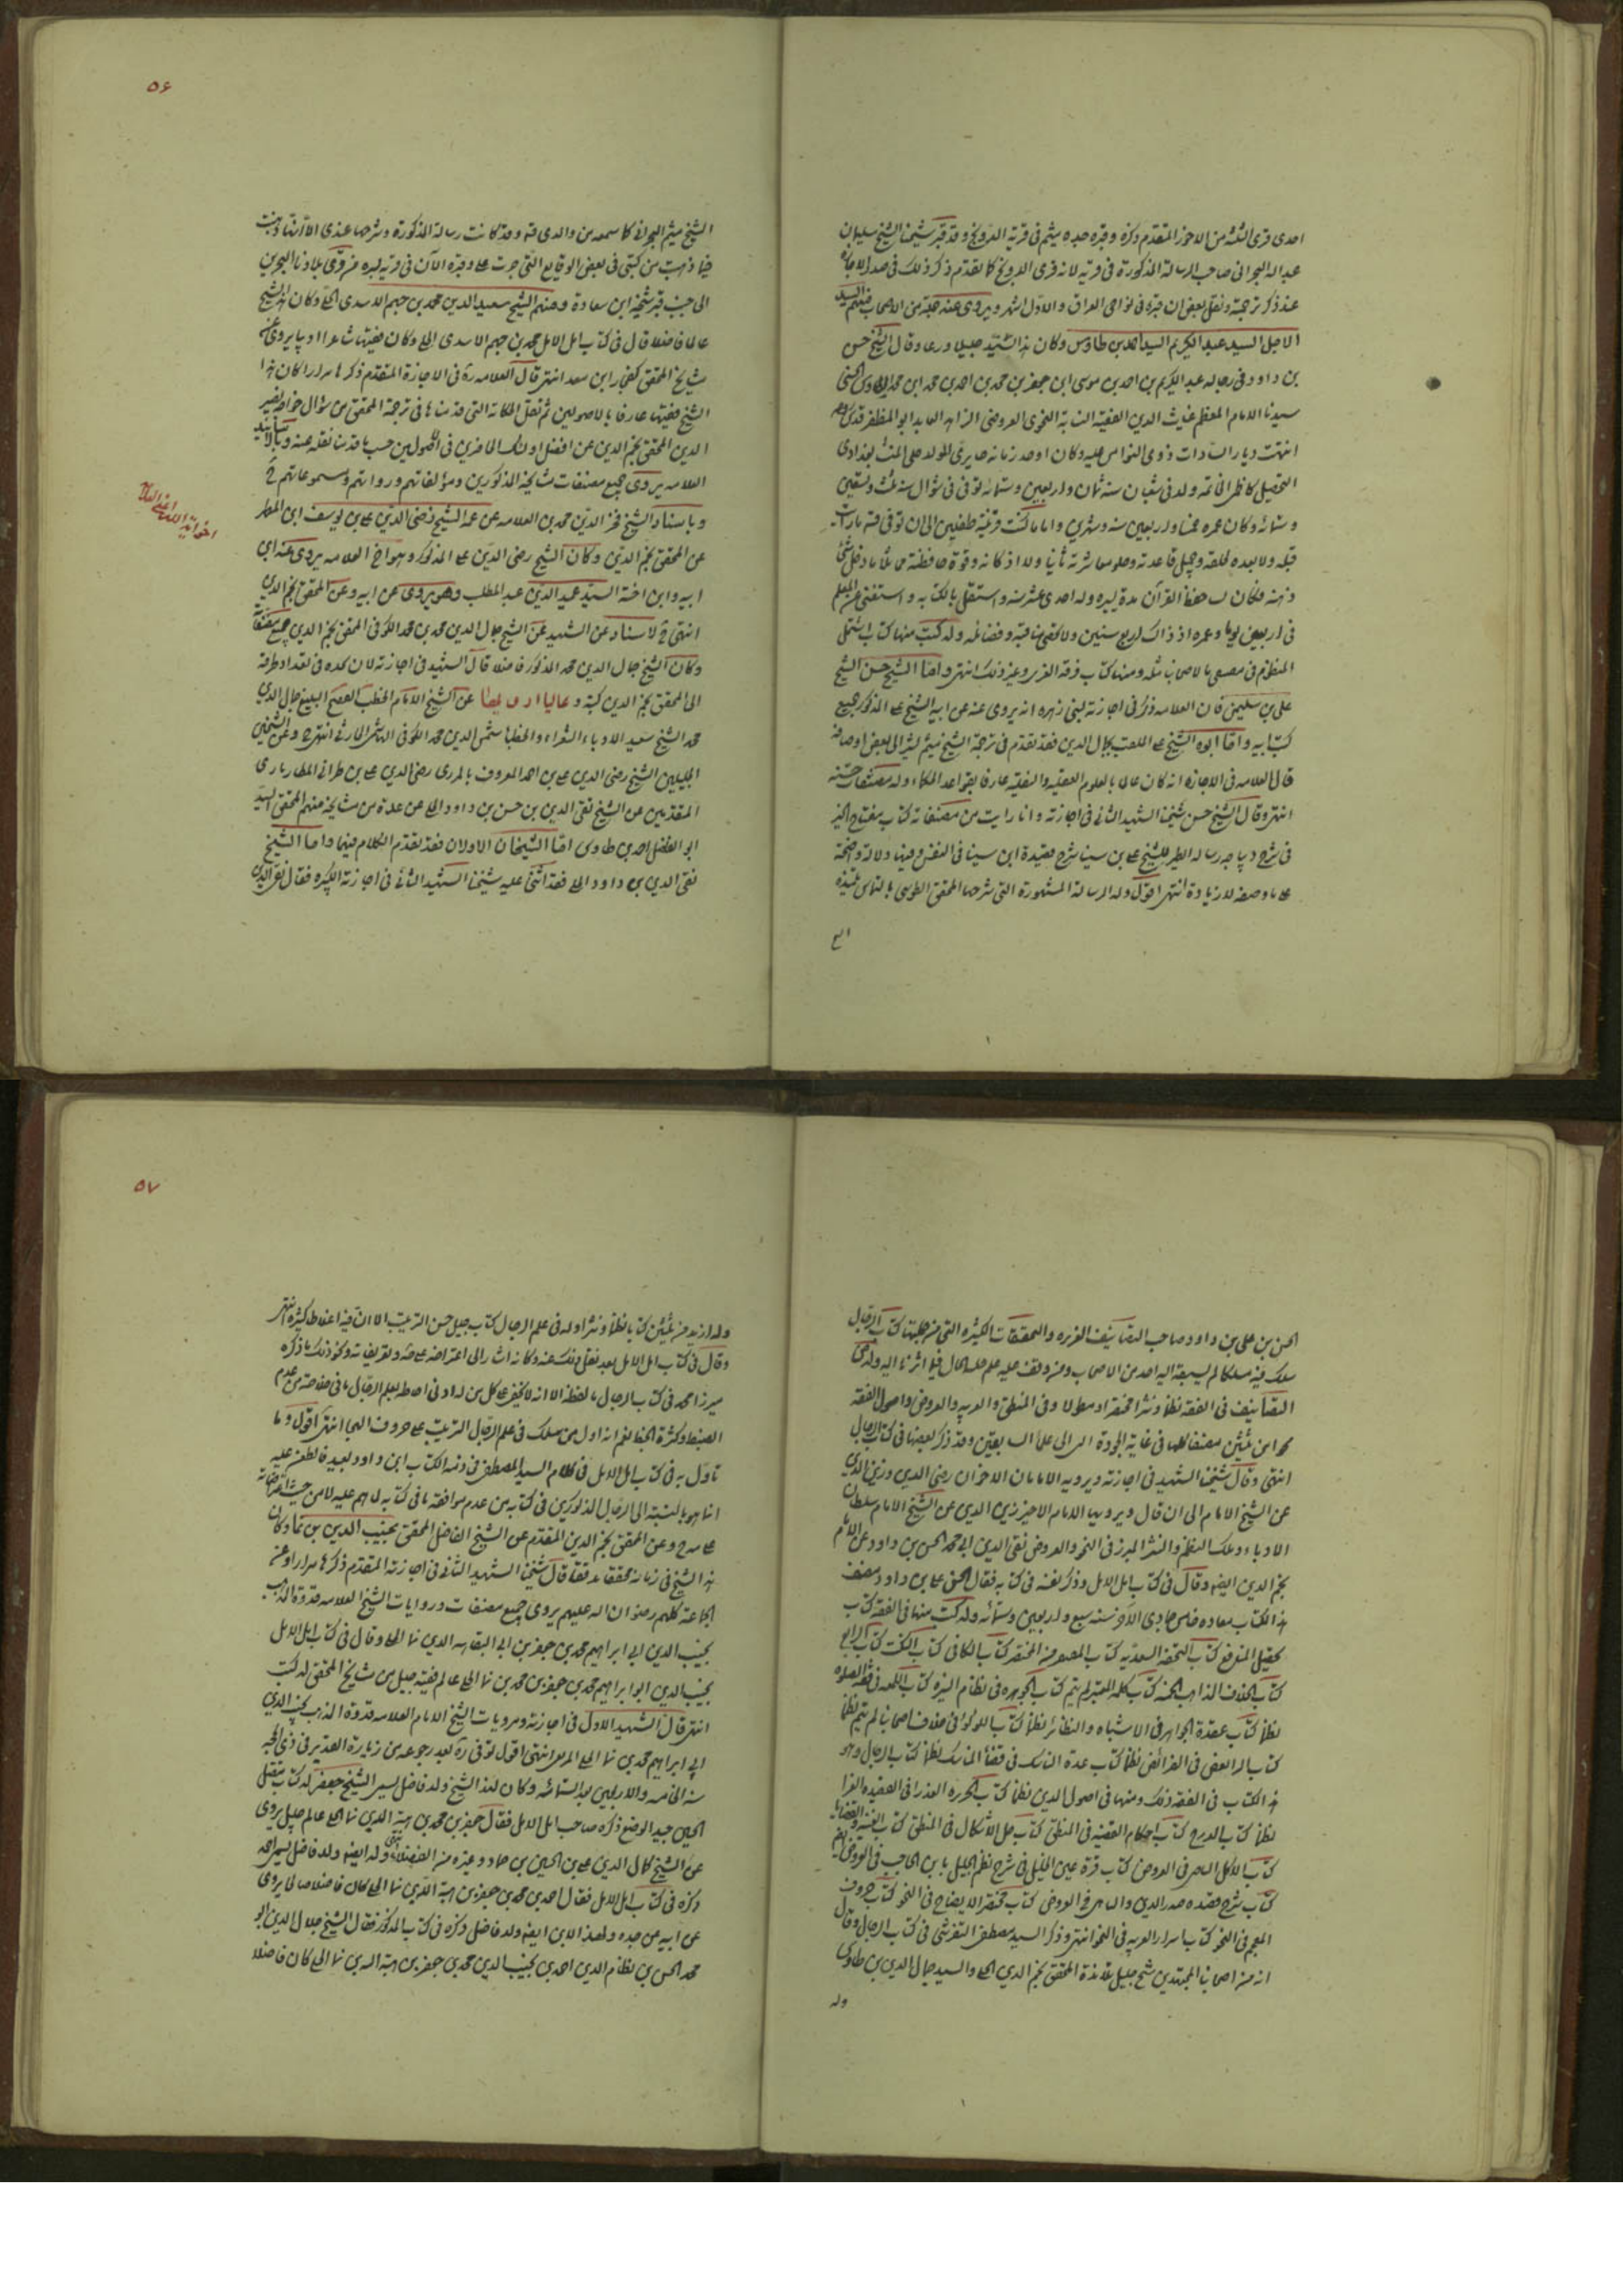 احدى قرى الثلثه من الاحوز المتقدم ذكره وقبره جده ميثم فى قرية الدونج وقد قبر شيخنا الشيخ سليمان
عبد الله البحرانى صاحب الرسالة المذكورة فى قرية لانه قرى الدونج كما تقدم ذكر ذلك فى صدر الاجازه
عند ذكر ترجمته ونقل بعض ان قبره فى نواحى العراق والاول اشهر ويروى عنه جملة من الاصحاب فمنهم السيد
الاجل السيد عبد الكريم السيد احمد بن طاوس وكان هذا السيد جليلا ورعا وقال الشيخ حسن
بن داود فى رجاله عبد الكريم بن احمد بن موسى ابن جعفر بن محمد بن احمد بن محمد ابن محمد الطاوسى الحسنى
سيدنا الامام المعظم غياث الدين الفقيه النسابة النحوى العروضى الزاهد العابد ابو المظفر قدس سره
انتهت رياسة السادات وذوى النواميس اليه وكان اوحد زمانه حايرى المولد حلى المنشا بغدادى
التحصيل كاظمى الخاتمه ولد فى شعبان سنه ثمان واربعين وستمائه توفى فى شوال سنه ثلث وتسعين
وستمائه وكان عمره خمسا واربعين سنه وشهرين واياما كنت قرينه طفلين الى ان توفى قده ما رايت
قبله ولا بعده لخلقه وجميل قاعدته وحلو معاشرته ثانيا ولا لذكائه وقوة حافظته مماثلا ما دخل شئ
ذهنه فكان ينساه حفظ القرآن مدة يسيره وله احدى عشر سنه واستقل بالكتابه واستغنى عن المعلم
فى اربعين يوما وعمره اذ ذاك اربع سنين ولا تحصى مناقبه وفضائله وله كتب منها كتاب الشمل
المنظوم فى مصنفى الاصحابنا مثله ومنها كتاب فرحة الغرى وغير ذلك انتهى واما الشيخ حسن الشيخ
على بن سليمن فان العلامه ذكر فى اجازته لبنى زهره انه يروى عنه عن ابيه الشيخ على المذكور جميع
كتب ابيه واما ابوه الشيخ على الملقب بجمال الدين فقد تقدم فى ترجمة الشيخ ميثم يشير الى بعض اوصافه
قال العلامه فى الاجازه انه كان عالما بالعلوم العقليه والنقليه عارفا بقواعد الحكماء وله مصنفات حسنه
انتهى وقال الشيخ حسن شيخنا الشهيد الثانى فى اجازته وانا رايت من مصنفاته كتاب مفتاح الخير
فى شرح ديباجه رساله الطير للشيخ على بن سينا شرح قصيدة ابن سينا فى النفس وفيها دلالة واضحة
على ما وصفه له زيادة انتهى اقول وله الرسالة المشهورة التى شرحها المحقق الطوسى بالتماس تلميذه
٥۶
الشيخ ميثم البحرانى كما سمعه من والدى قده وقد كانت رساله المذكورة وشرحها عندى الا انها ذهبت
فيما ذهبت من كتبى فى بعض الوقايع التى جرت على وقبره الآن فى قرية ستره من قرى بلادنا البحرين
الى جنب قبر شيخه ابن سعادة ومنهم الشيخ سعيد الدين محمد بن جهم الاسدى الحلى وكان هذا الشيخ
عالما فاضلا قال فى كتاب امل الامل محمد بن جهم الاسدى الحلى وكان فقيها شاعرا اديبا يروى عنه
مشايخ المحقق كفخار ابن معد انتهى قال العلامه ره فى الاجازة المتقدم ذكرها مرارا كان هذا
الشيخ فقيها عارفا بالاصولين ثم نقل الحكاية التى قدمناها فى ترجمة المحقق من سؤال خواجه نصير
الدين المحقق نجم الدين عن افضل اولئك الحاضرين فى الاصولين حسب ما قدمنا نقله عنه وبالاسانيد
العلامه يروى جميع مصنفات مشايخه المذكورين ومؤلفاتهم ورواياتهم ومسموعاتهم ح
وباسناد الشيخ فخر الدين محمد بن العلامه عن عمه الشيخ رضى الدين على بن يوسف ابن المطهر
عن المحقق نجم الدين وكان الشيخ رضى الدين على المذكور وهو اخ العلامه يروى عنه ابن
ابيه وابن اخته السيد عميد الدين عبد المطلب وهو يروى عن ابيه وعن المحقق نجم الدين
انتهى ح لاسناد عن الشهيد عن الشيخ جلال الدين محمد بن محمد الكوفى المحقق نجم الدين جميع مصنفاته
وكان الشيخ جمال الدين محمد المذكور فاضلا قال الشهيد فى اجازته لابن نجده فى تعداد طرقه
الى المحقق نجم الدين كتبه وعاليا عن الشيخ الامام الخطيب المصقع البليغ جلال الدين
محمد الشيخ سعيد الادباء الشعراء والخطباء شمس الدين محمد الكوفى الهاشمى الحارثى انتهى ح وعن الشيخين
الجليلين الشيخ رضى الدين على بن احمد المعروف بالمزيدى رضى الدين على بن طراد المطاربادى
المتقدمين عن الشيخ تقى الدين بن حسن بن داود الحلى عن عدة من مشايخه منهم المحقق السيد
ابو الفضائل احمد بن طاوس اما الشيخان الاولان فقد تقدم الكلام فيهما واما الشيخ
تقى الدين بن داود الحلى فقد اثنى عليه شيخنا الشهيد الثانى فى اجازته الكبيره فقال تقى الدين
الحسن بن على بن داود صاحب التصانيف الغزيره والتحقيقات الكثيره التى من جملتها كتاب الرجال
سلك فيه مسلكا لم يسبقه اليه احد من الاصحاب ومن وقف عليه علم جليه الحال فيما اشرنا اليه وله من
التصانيف فى الفقه نظما ونثرا مختصرا ومطولا وفى المنطق والعربيه والعروض واصول الفقه
نحو من ثلثين مصنفا كلها فى غاية الجودة وقد ذكر بعضها فى كتاب الرجال
انتهى وقال شيخنا الشهيد فى اجازته ويرويه الامامان الاخوان رضى الدين وزين الدين
عن الشيخ الامام الى ان قال ويرويها الامام الاخير زين الدين عن الشيخ الامام سلطان
الادباء وملك النظم والنثر المبرز فى النحو والعروض تقى الدين ابى محمد الحسن بن داود عن الامام
نجم الدين ايضا وقال فى كتاب امل الامل وذكر نفسه فى كتابه فقال الحسن على بن داود مصنف
هذا الكتاب مولده خامس جمادى الآخر سنه سبع واربعين وستمائه وله كتب منها فى الفقه كتاب
تحصيل المنافع كتاب التحفه السعديه كتاب المقتصر من المختصر كتاب الكافى كتاب النكت كتاب الرايع
كتاب الخلاف المذاهب الخمسه كتاب تكملة المعتبر لم يتم كتاب الجوهره فى نظام التبصره كتاب اللمعه فى فقه الصلوة
نظما كتاب عقد الجواهر فى الاشباه والنظائر نظما كتاب اللؤلؤ فى خلاف اصحابنا لم يتم نظما
كتاب الرائض فى الفرائض نظما كتاب عدة الناسك فى قضاء المناسك نظما كتاب الرجال وهو
هذا الكتاب فى الفقه ذلك ومنها فى اصول الدين نظما كتاب الخريده العذراء فى العقيده الغراء
نظما كتاب الدرج كتاب احكام القضيه فى المنطق كتاب حل الاشكال فى المنطق كتاب
كتاب الاكليل التاجى فى العروض كتاب قرة عين الخليل فى شرح نظم الجليل لابن الحاجب فى العروض ايضا
كتاب شرح قصيده صدر الدين الساوى فى العروض كتاب مختصر الايضاح فى النحو كتاب حروف
المعجم فى النحو كتاب اسرار العربيه فى النحو انتهى وذكر السيد مصطفى التفرشى فى كتاب الرجال وقال
انه من اصحابنا المجتهدين شيخ جليل من تلامذة المحقق نجم الدين الحلى والسيد جمال الدين بن طاوس
وله
٥٧
وله ازيد من ثلثين كتابا نظما ونثرا وله فى علم الرجال كتاب جيد حسن الترتيب الا ان فيه اغلاطا كثيرة انتهى
وقال فى كتاب امل الامل بعد نقل ذلك عنه وكانه اشار الى اعتراضه على وتعريفاته ونحو ذلك ما ذكره
ميرزا محمد فى كتاب الرجال ما لفظه الا انه لا يخفى على كل من له ادنى اطلاع بعلم الرجال ما فى خلاصته من عدم
الضبط وكثرة الخبط نعم انه اول من سلك فى علم الرجال الترتيب على حروف الهجاء انتهى اقول وما
تاول به فى كتاب امل الامل فى كلام السيد المصطفى فى ذمه الكتاب ابن داود بعيد فالطعن عليه
انما هو بالنسبة الى الرجال المذكورين فى كتابه من عدم موافقة ما فى كتابه لما هم عليه لا من حيث
على مدح وعن المحقق نجم الدين المتقدم عن الشيخ الفاضل المحقق نجيب الدين بن نما وكان
هذا الشيخ فى زمانه محققا مدققا قال شيخنا الشهيد الثانى فى اجازته المتقدم ذكرها مرارا وعن
الجماعة كلهم رضوان الله عليهم يروى جميع مصنفات وروايات الشيخ العلامه قدوة المذهب
نجيب الدين ابى ابراهيم محمد بن جعفر بن ابى البقاء هبة الدين نما الحلى وقال فى كتاب امل الامل
نجيب الدين ابو ابراهيم محمد بن جعفر بن محمد بن نما الحلى عالم فقيه جليل من مشايخ المحقق له كتب
انتهى قال الشهيد الاول فى اجازته ومرويات الشيخ الامام العلامه قدوة المذهب نجيب الدين
ابى ابراهيم محمد بن نما الحلى الربعى انتهى اقول توفى ره بعد رجوعه من زيارة الغدير فى ذى الحجه
سنه الخامسه والاربعين بعد الستمائه وكان لهذا الشيخ ولد فاضل يسمى الشيخ جعفر له كتاب مقتل
الحسين جيد الوضع ذكره صاحب امل الامل فقال جعفر بن محمد بن هبة الدين نما الحلى عالم جليل يروى
عن الشيخ كمال الدين على بن الحسين بن حماد وغيره من الفضلاء انتهى وله ايضا ولد فاضل يسمى احمد
ذكره فى كتاب امل الامل فقال احمد بن محمد بن جعفر بن هبة الدين نما الحلى كان فاضلا صالحا يروى
عن ابيه عن جده ولهذا الابن ايضا ولد فاضل ذكره فى كتاب المذكور فقال الشيخ جلال الدين ابو
محمد الحسن بن نظام الدين احمد بن نجيب الدين محمد بن جعفر بن هبة الله بن نما الحلى كان فاضلا